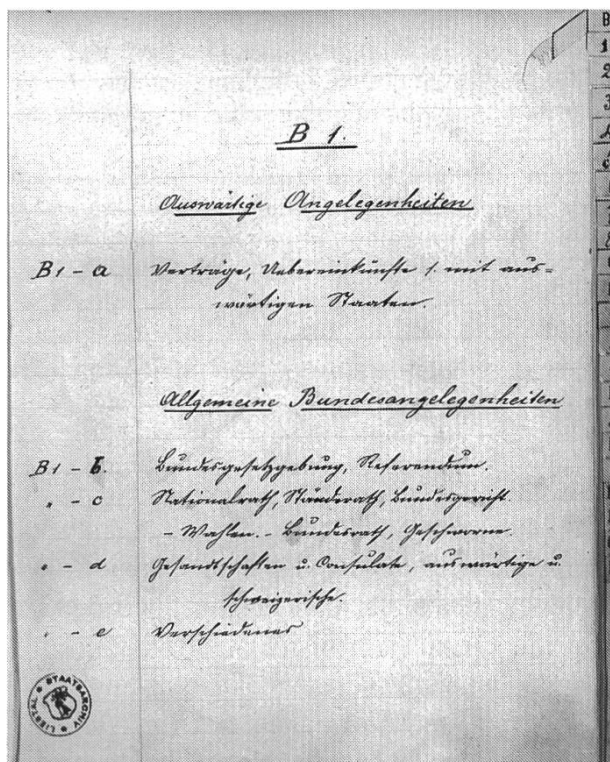 B 1.
Auswärtige Angelegenheiten
B 1 - a Verträge, Uebereinkünfte mit aus-
wärtigen Staaten.
Allgemeine Bundesangelegenheiten
B 1 - b. Bundesgesetzgebung, Referendum.
" - c Nationalrath, Ständerath, Bundesgericht
- Wahlen. - Bundesrath, Geschworne.
" - d Gesandtschaften u. Consulate, auswärtige u.
schweizerische.
" - e Verschiedenes
STAATSARCHIV LIESTAL
B
1
2
3